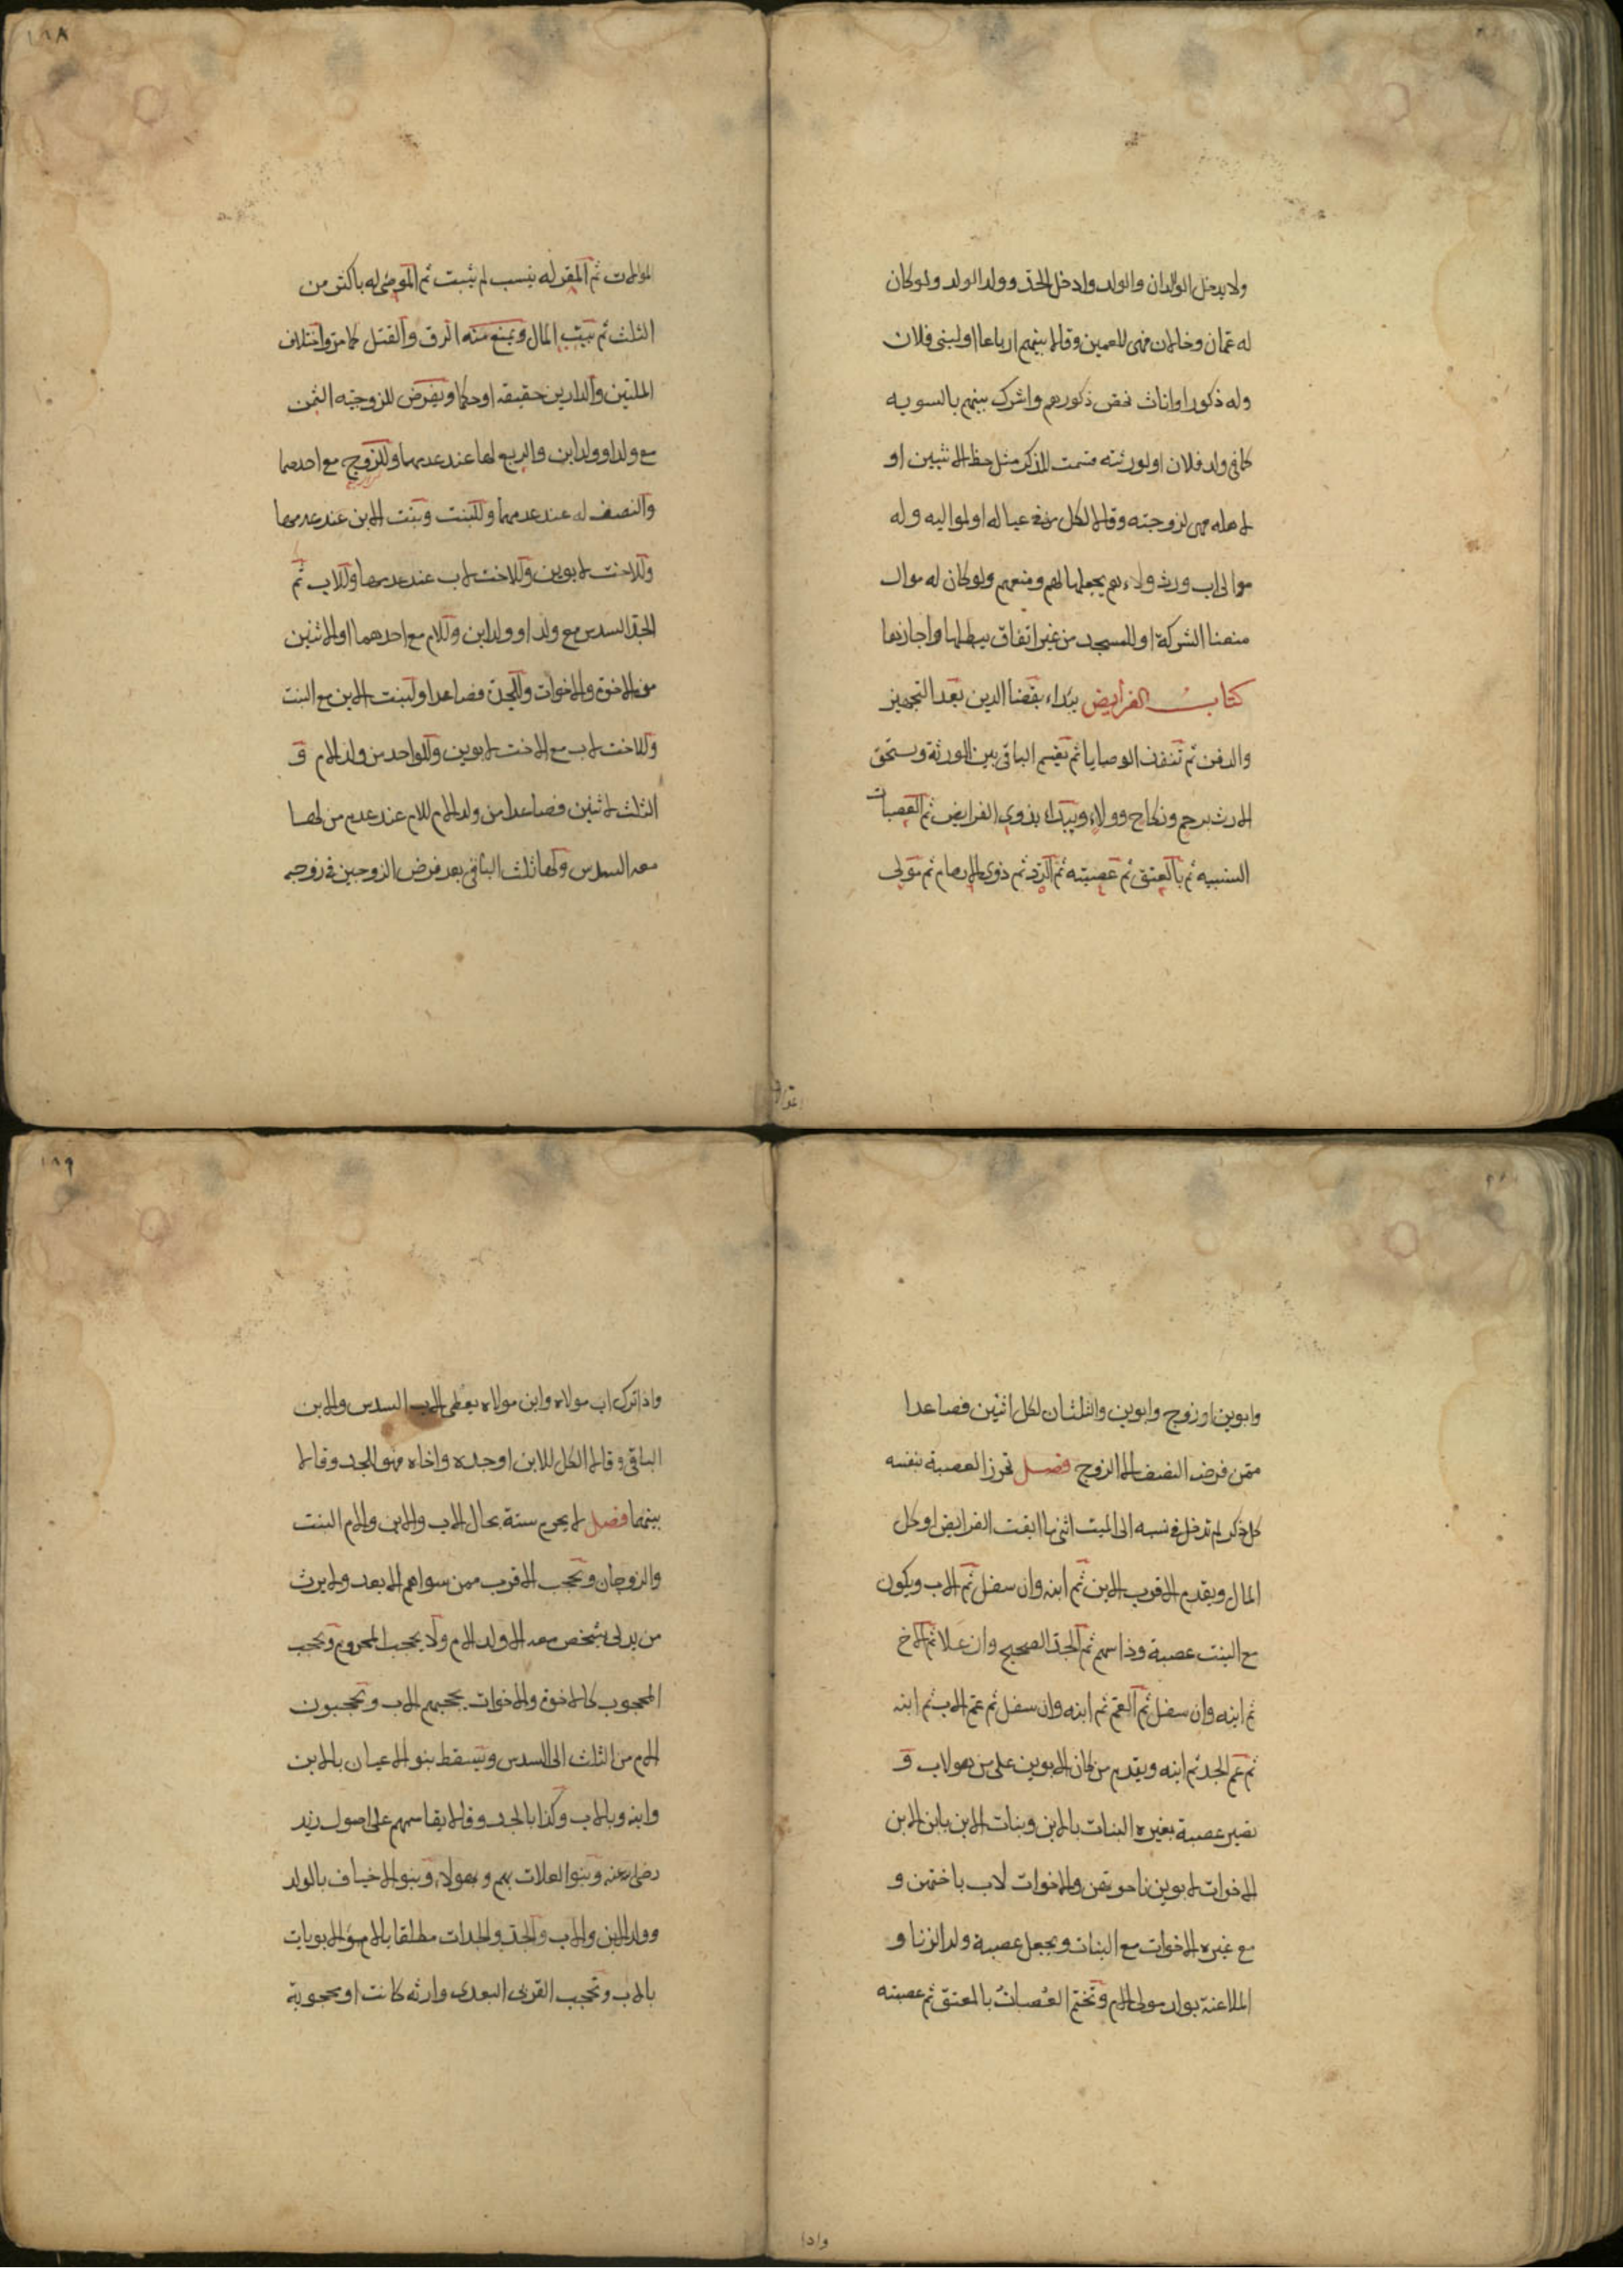 ولا يدخل الوالدان والولد وادخل الجد وولد الولد ولو كان
له عمان وخالان فهى للعمين وقالا بينهم ارباعا اولبنى فلان
وله ذكور اواناث خص ذكورهم واشرك بينهم بالسويه
كما فى ولد فلان اولورثته قسمت للذكر مثل حظ الانثيين او
لاهله فهى لزوجته وقالا لكل من فى عياله اولمواليه وله
موالى اب ورث ولاءهم يجعلها لهم ومنعهم ولو كان له موال
منعنا الشركة او للمسجد من غير انفاق يبطلها واجازها
كتاب الفرايض يبداء بقضا الدين بعد التجهيز
والدفن ثم تنفذ الوصايا ثم يقسم الباقى بين الورثة ويستحق
الارث برحم ونكاح وولاء ويبداء بذوى الفرايض ثم العصبات
النسبيه ثم بالمعتق ثم عصبته ثم الرد ثم ذوى الارحام ثم مولى
الموالات ثم المقر له بنسب لم يثبت ثم الموصى له باكثر من
الثلث ثم بيت المال ويمنع منه الرق والقتل كما مر واختلاف
الملتين والدارين حقيقه اوحكما ويفرض للزوجته الثمن
مع ولد اوولد ابن والربع لها عند عدمهما وللزوج مع احدهما
والنصف له عند عدمهما وللبنت وبنت الابن عند عدمها
وللاخت لابوين وللاخت لاب عند عدمها وللاب ثم
الجد السدس مع ولد اوولد ابن وللام مع احدهما اوالاثنين
من الاخوة والاخوات وللجدة فصاعدا ولبنت الابن مع البنت
وللاخت لاب مع الاخت لابوين وللواحد من ولد الام و
الثلث لاثنين فصاعدا من ولد الام للام عند عدم من لها
معه السدس ولها ثلث الباقى بعد فرض الزوجين فى زوجه
وابوين اوزوج وابوين والثلثان لكل اثنين فصاعدا
ممن فرضه النصف الا الزوج فصل تحرز العصبة بنفسه
كل ذكر لم تدخل فى نسبه الى الميت انثى ما ابقت الفرايض اوكل
المال ويقدم الاقرب الابن ثم ابنه وان سفل ثم الاب ويكون
مع البنت عصبة وذا سهم ثم الجد الصحيح وان علا ثم الاخ
ثم ابنه وان سفل ثم العم ثم ابنه وان سفل ثم عم الاب ثم ابنه
ثم عم الجد ثم ابنه ويقدم من كان لابوين على من هو لاب و
تصير عصبة بغيره البنات بالابن وبنات الابن بابن الابن
الاخوات لابوين باخوتهن والاخوات لاب باختهن و
مع غيره الاخوات مع البنات ويجعل عصبة ولد الزنا و
الملاعنة بولد مولى الام وتختم العصبات بالمعتق ثم عصبته
واذا
واذا ترك اب مولاه وابن مولاه يعطى الاب السدس والابن
الباقى وقالا الكل للابن اوجده واخاه فهو للجد وقالا
بينهما فصل لا يحرم ستة بحال الاب والابن والام البنت
والزوجان ويحجب الاقرب ممن سواهم الابعد ولا يرث
من يدلى بشخص معه الا ولد الام ولا يحجب المحروم ويحجب
المحجوب كالاخوة والاخوات يحجبهم الاب ويحجبون
الام من الثلث الى السدس ويسقط بنو الاعيان بالابن
وابنه وبالاب وكذا بالجد وقالا يقاسمهم على اصول زيد
رضى الله عنه وبنو العلات بهم وبهولاء وبنو الاخياف بالولد
وولد الابن والاب والجد والجدات مطلقا بالام والابويات
بالاب وتحجب القربى البعدى وارثه كانت اومحجوبة
١٨٨
١٨٩